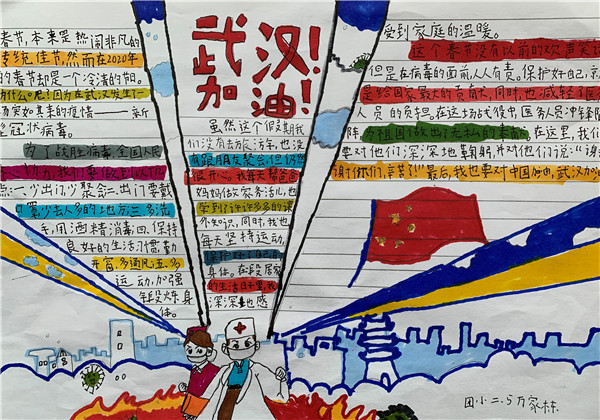 武汉!
加油!
春节,本来是热闹非凡的
传统佳节,然而在2020年
的春节却是一个冷清的节日。
为什么呢?因为在武汉发生了一
场突如其来的疫情——新
冠状病毒。
为了战胜病毒,全国人民
我们要做到几
点:一.少出门少聚会.二.出门要戴
口罩少去人多的地方.三.多洗
手,用酒精消毒.四.保持
良好的生活习惯勤
开窗,多通风.五.多
运动,加强
锻炼身
体。
虽然这个假期我
们没有去旅游,也没
有跟朋友聚会,但仍然
很开心。我每天帮爸爸
妈妈做家务活儿,也
学到了许许多多的课
外知识,同时,我也
每天坚持运动,
保护自己的
身体。在段居家
的生活日子里,我
深深地感
受到家庭的温暖。
这个春节没有以前的欢声笑语
但是在病毒的面前,人人有责,保护好自己,就
是给国家最大的贡献,同时,也减轻了医务
人员的负担。在这场战役中医务人员冲锋陷
阵,为祖国做出了无私的奉献,在这里,我们
要对他们深深地鞠躬,并对他们说:“谢
谢你们,辛苦了!”最后,我也要对中国加油,武汉加油
团.小二.5万家林